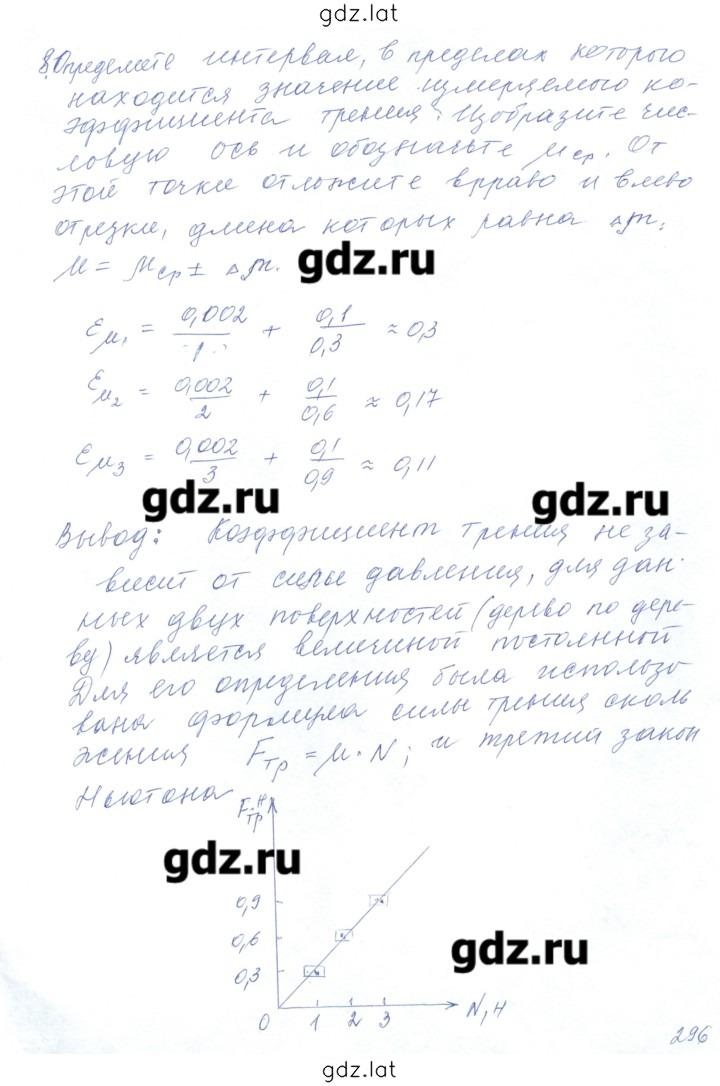 gdz.lat
8. Определите интервал, в пределах которого
находится значение измеряемого ко-
эффициента трения. Изобразите чис-
ловую ось и обозначьте μср. От
этой точки отложите вправо и влево
отрезки, длина которых равна
μ = μср ±
gdz.ru
εμ₁ = 0,002/1 + 0,1/0,3 ≈ 0,3
εμ₂ = 0,002/2 + 0,1/0,6 ≈ 0,17
εμ₃ = 0,002/3 + 0,1/0,9 ≈ 0,11
gdz.ru gdz.ru
Вывод: Коэффициент трения не за-
висит от силы давления, для дан-
ных двух поверхностей (дерево по дере-
ву) является величиной постоянной
Для его определения была использо
вана формула силы трения сколь
жения Fтр = μ · N; и третий закон
Ньютона
Fтр, Н
gdz.ru
0,9
0,6
gdz.ru
0,3
0 1 2 3 N, Н
296
gdz.lat